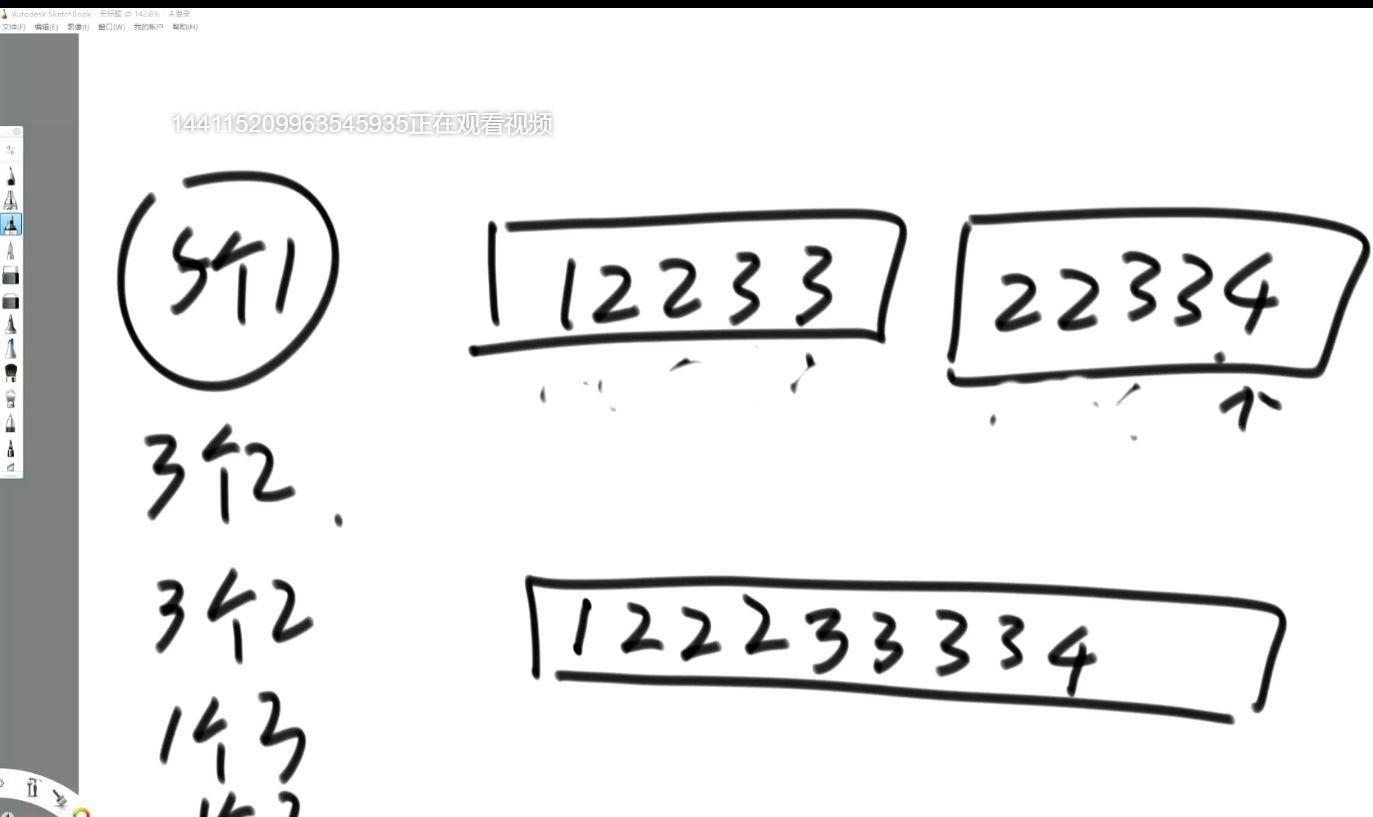 Autodesk SketchBook - 无标题 @ 142.8% - 未登录
文件(F) 编辑(E) 图像(I) 窗口(W) 我的帐户 帮助(H)
144115209963545935正在观看视频
5个1
1 2 2 3 3
2 2 3 3 4
3个2
3个2
1 2 2 2 3 3 3 3 4
1个3